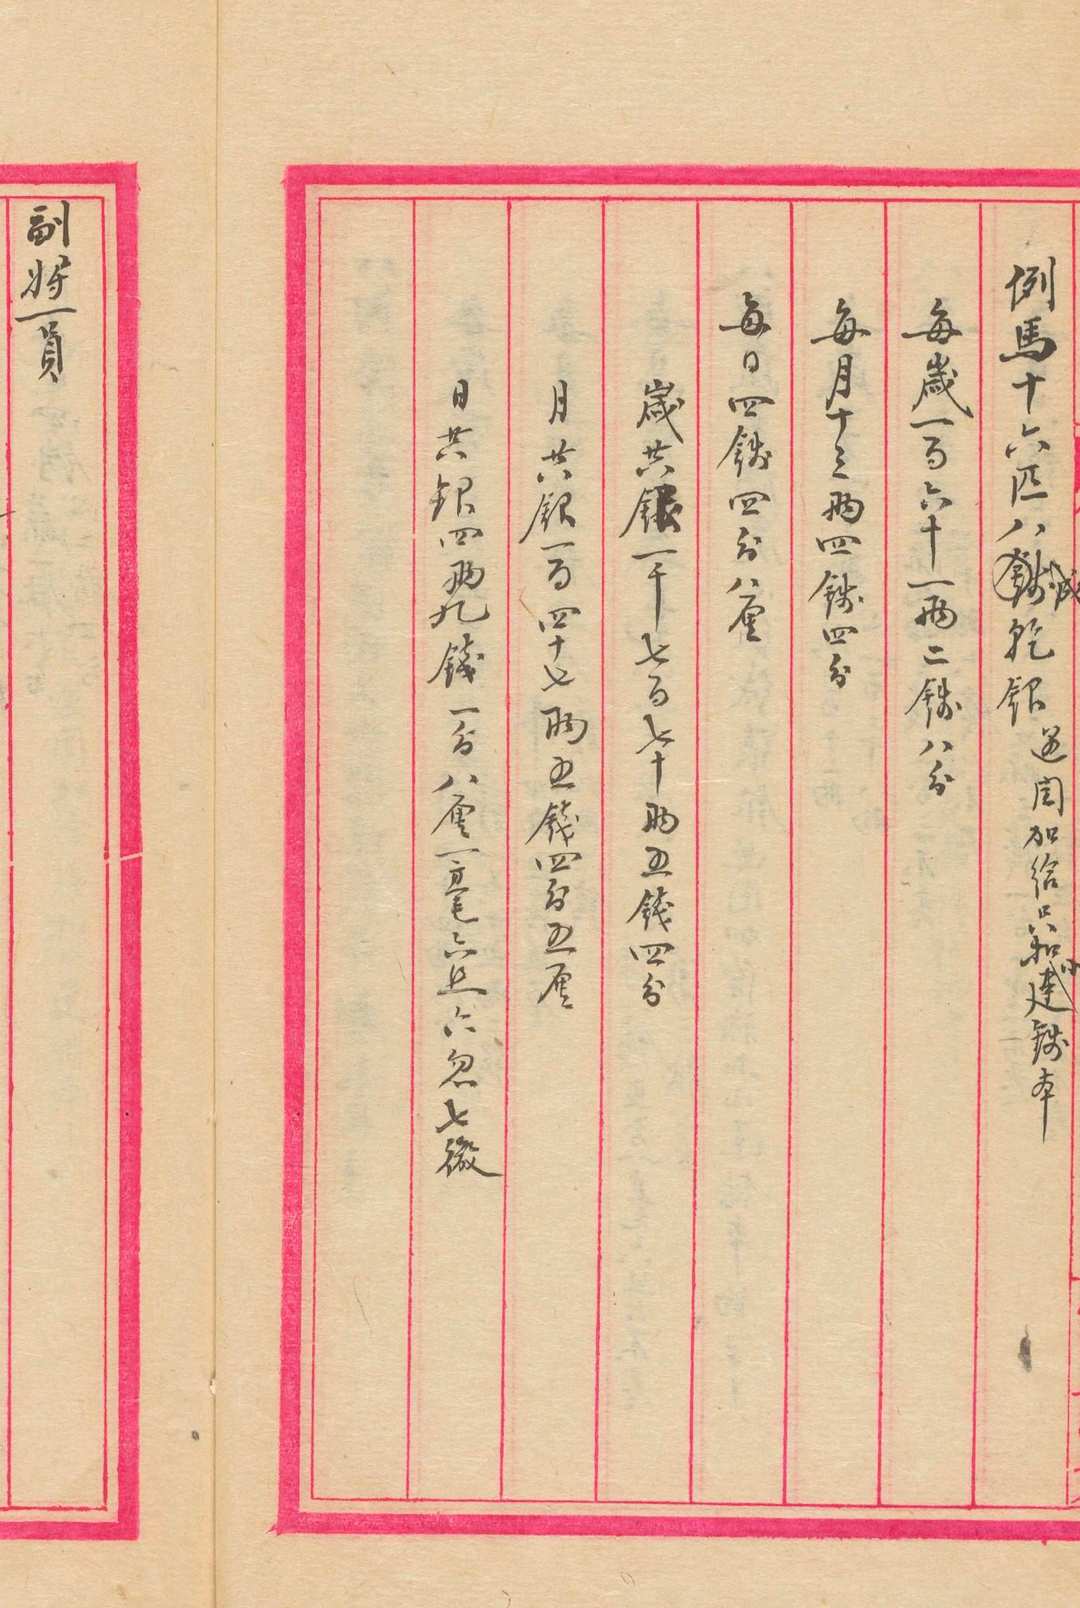 例馬十六匹八成乾銀遇閏加給只扣小建錢本
每歲一百六十一兩二錢八分
每月十三兩四錢四分
每日四錢四分八厘
歲共銀一千七百七十兩五錢四分
月共銀一百四十七兩五錢四分五厘
日共銀四兩九錢一分八厘一毫六丝六忽七微
副將一員